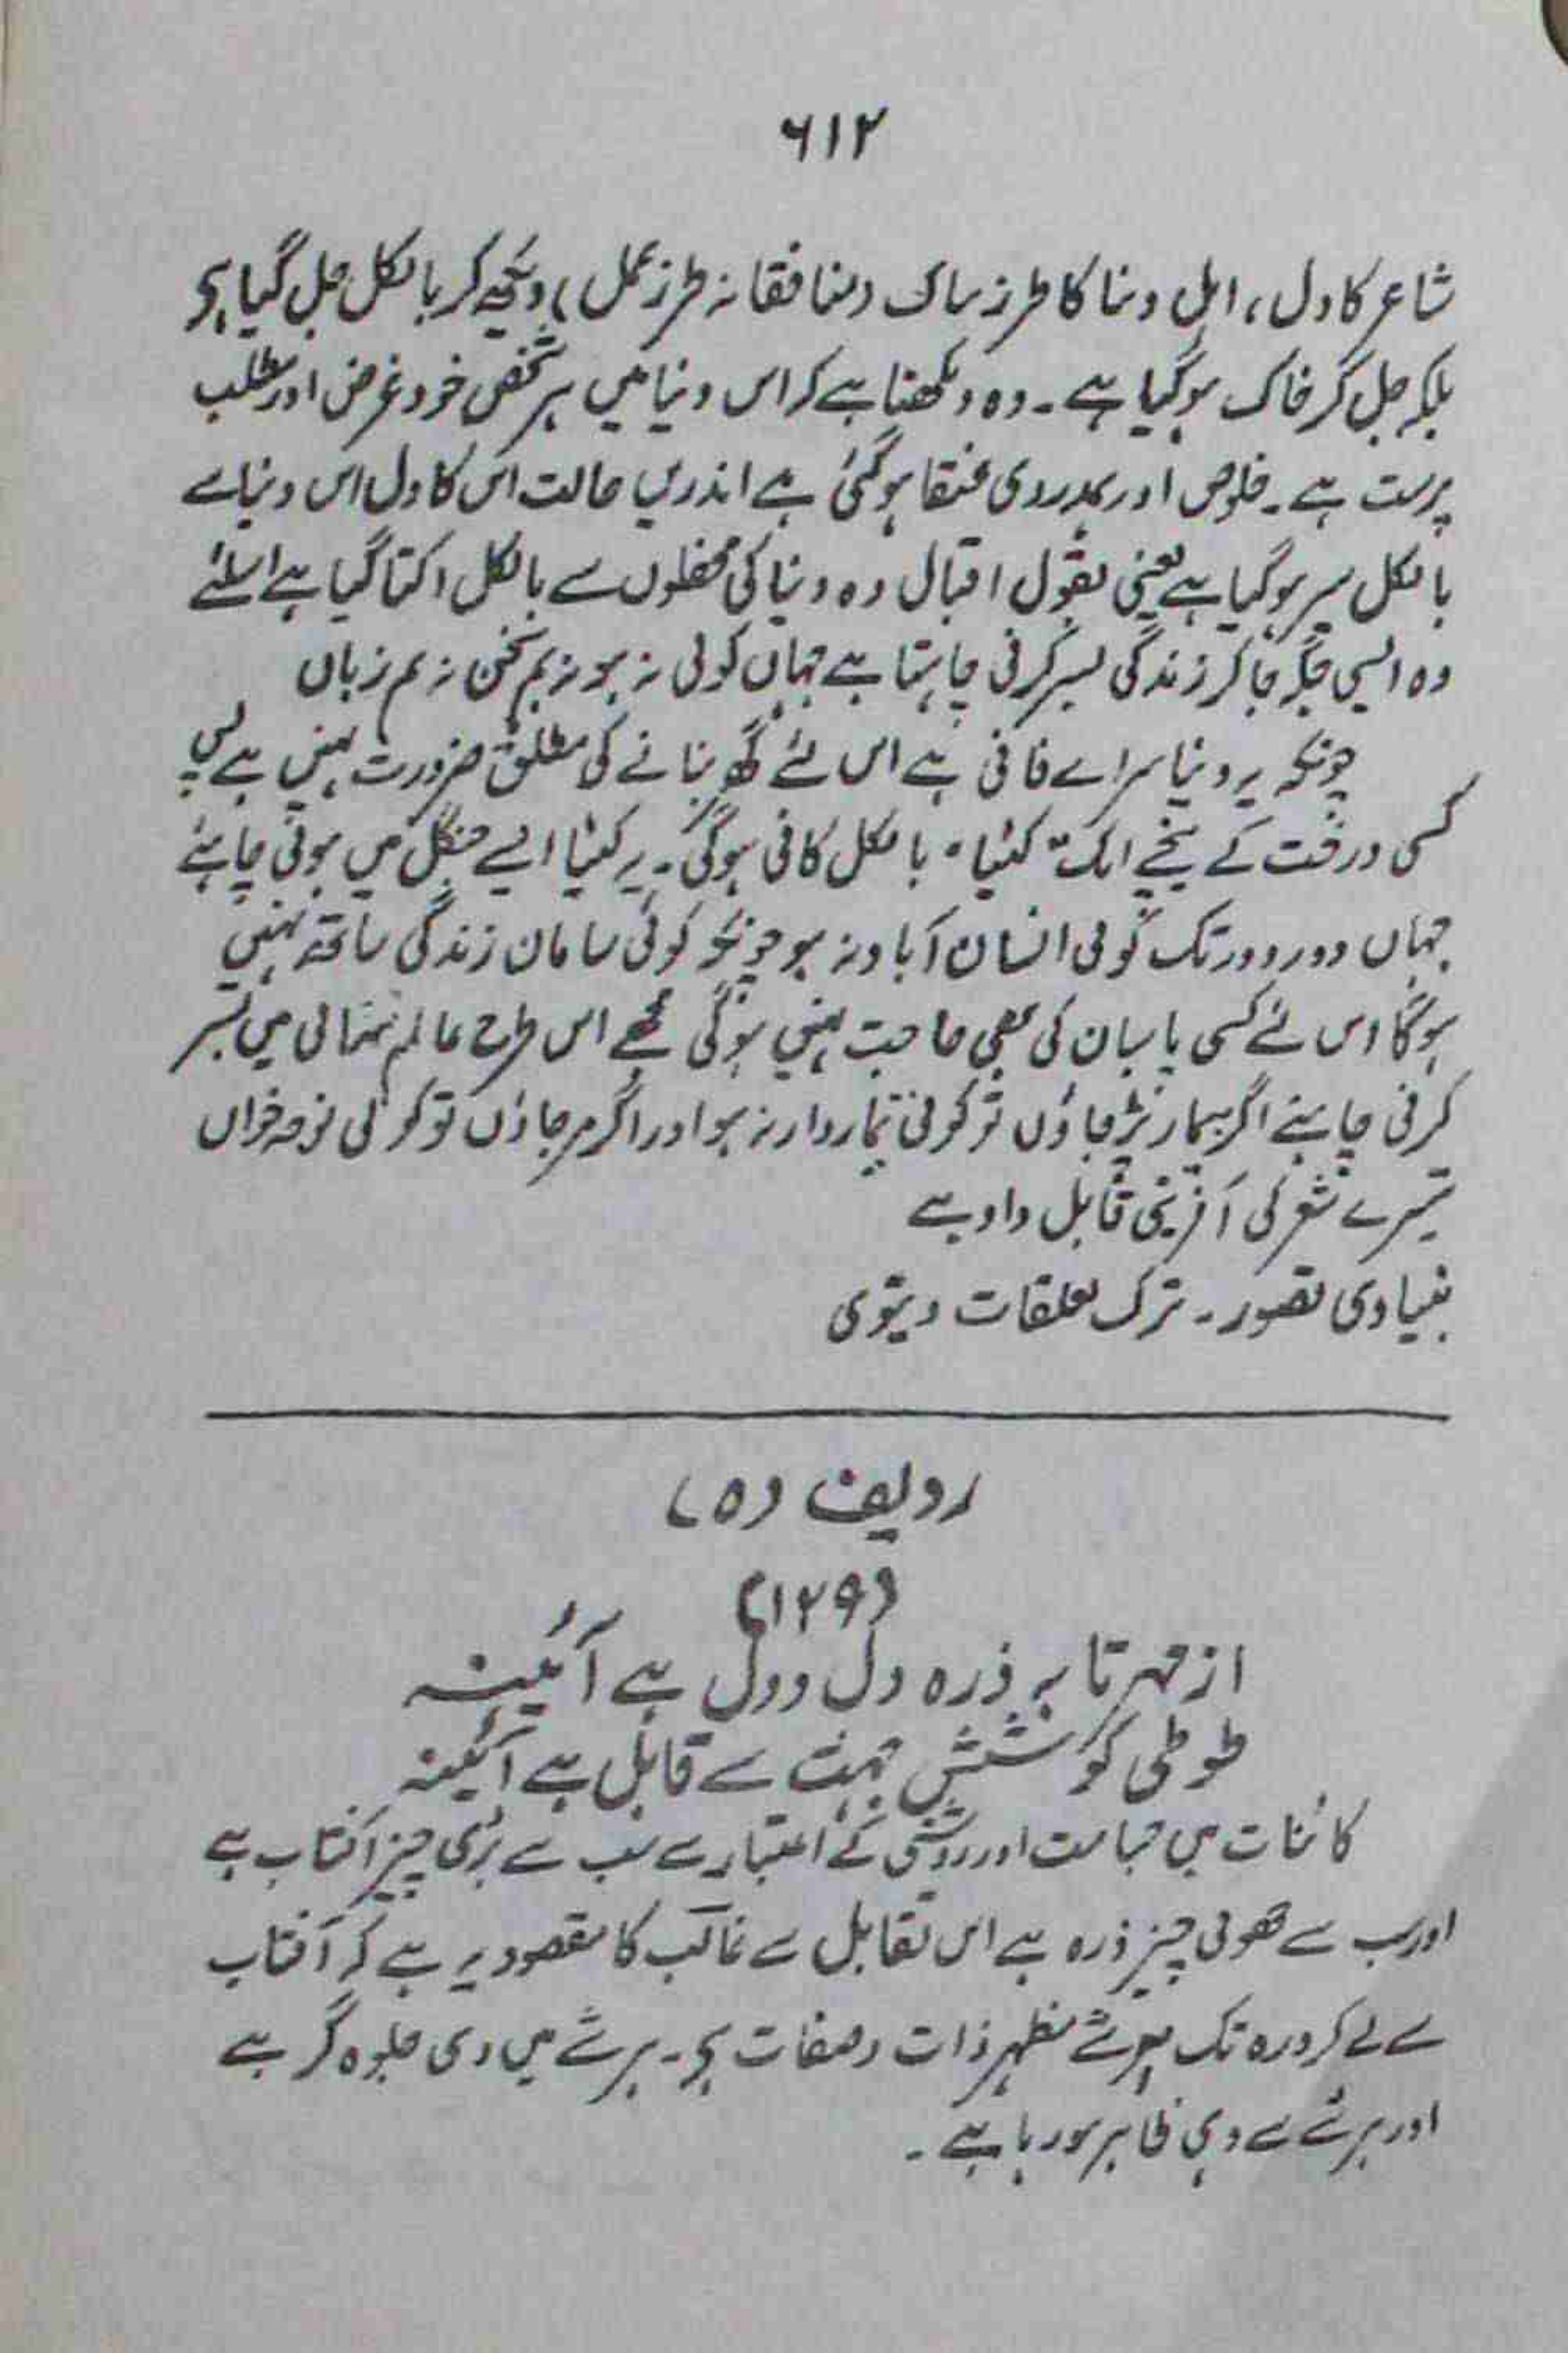 ۶۱۲
شاعر کا دل، اہل دنیا کا طرز تپاک (منافقانہ طرز عمل) دیکھ کر بالکل جل گیا ہے
بلکہ جل کر خاک ہوگیا ہے۔ وہ دیکھتا ہے کہ اس دنیا میں ہر شخص خود غرض اور مطلب
پرست ہے۔ خلوص اور ہمدردی عنقا ہوگئی ہے اندریں حالت اس کا دل اس دنیا سے
بالکل سیر ہوگیا ہے یعنی بقول اقبال وہ دنیا کی محفلوں سے بالکل اکتا گیا ہے اسلئے
وہ ایسی جگہ جا کر زندگی بسر کرنی چاہتا ہے جہاں کوئی نہ ہو نہ ہم سخن نہ ہم زباں
چونکہ یہ دنیا سرائے فانی ہے اس لئے گھر بنانے کی مطلق ضرورت نہیں ہے بس
کسی درخت کے نیچے ایک "کٹیا" بالکل کافی ہوگی۔ یہ کٹیا ایسے جنگل میں ہونی چاہئے
جہاں دور دور تک کوئی انسان آباد نہ ہو چونکہ کوئی سامان زندگی ساتھ نہیں
ہوگا اس لئے کسی پاسبان کی بھی حاجت نہیں ہوگی مجھے اس طرح عالم تنہائی میں بسر
کرنی چاہئے اگر بیمار پڑ جاؤں تو کوئی تیماردار نہ ہو اور اگر مر جاؤں تو کوئی نوحہ خواں
تیسرے شعر کی آفرینی قابل داد ہے
بنیادی تصور۔ ترک تعلقات دنیوی
ردیف (ہ)
(۱۲۹)
از مہر تا بہ ذرہ دل و دل ہے آئینہ
طوطی کو شش جہت سے قابل ہے آئینہ
کائنات میں جسامت اور روشنی کے اعتبار سے سب سے بڑی چیز آفتاب ہے
اور سب سے چھوٹی چیز ذرہ ہے اس تقابل سے غالب کا مقصود یہ ہے کہ آفتاب
سے لے کر ذرہ تک ہر شے مظہر ذات و صفات ہے۔ ہر شے میں وہی جلوہ گر ہے
اور ہر شے سے وہی ظاہر ہو رہا ہے۔